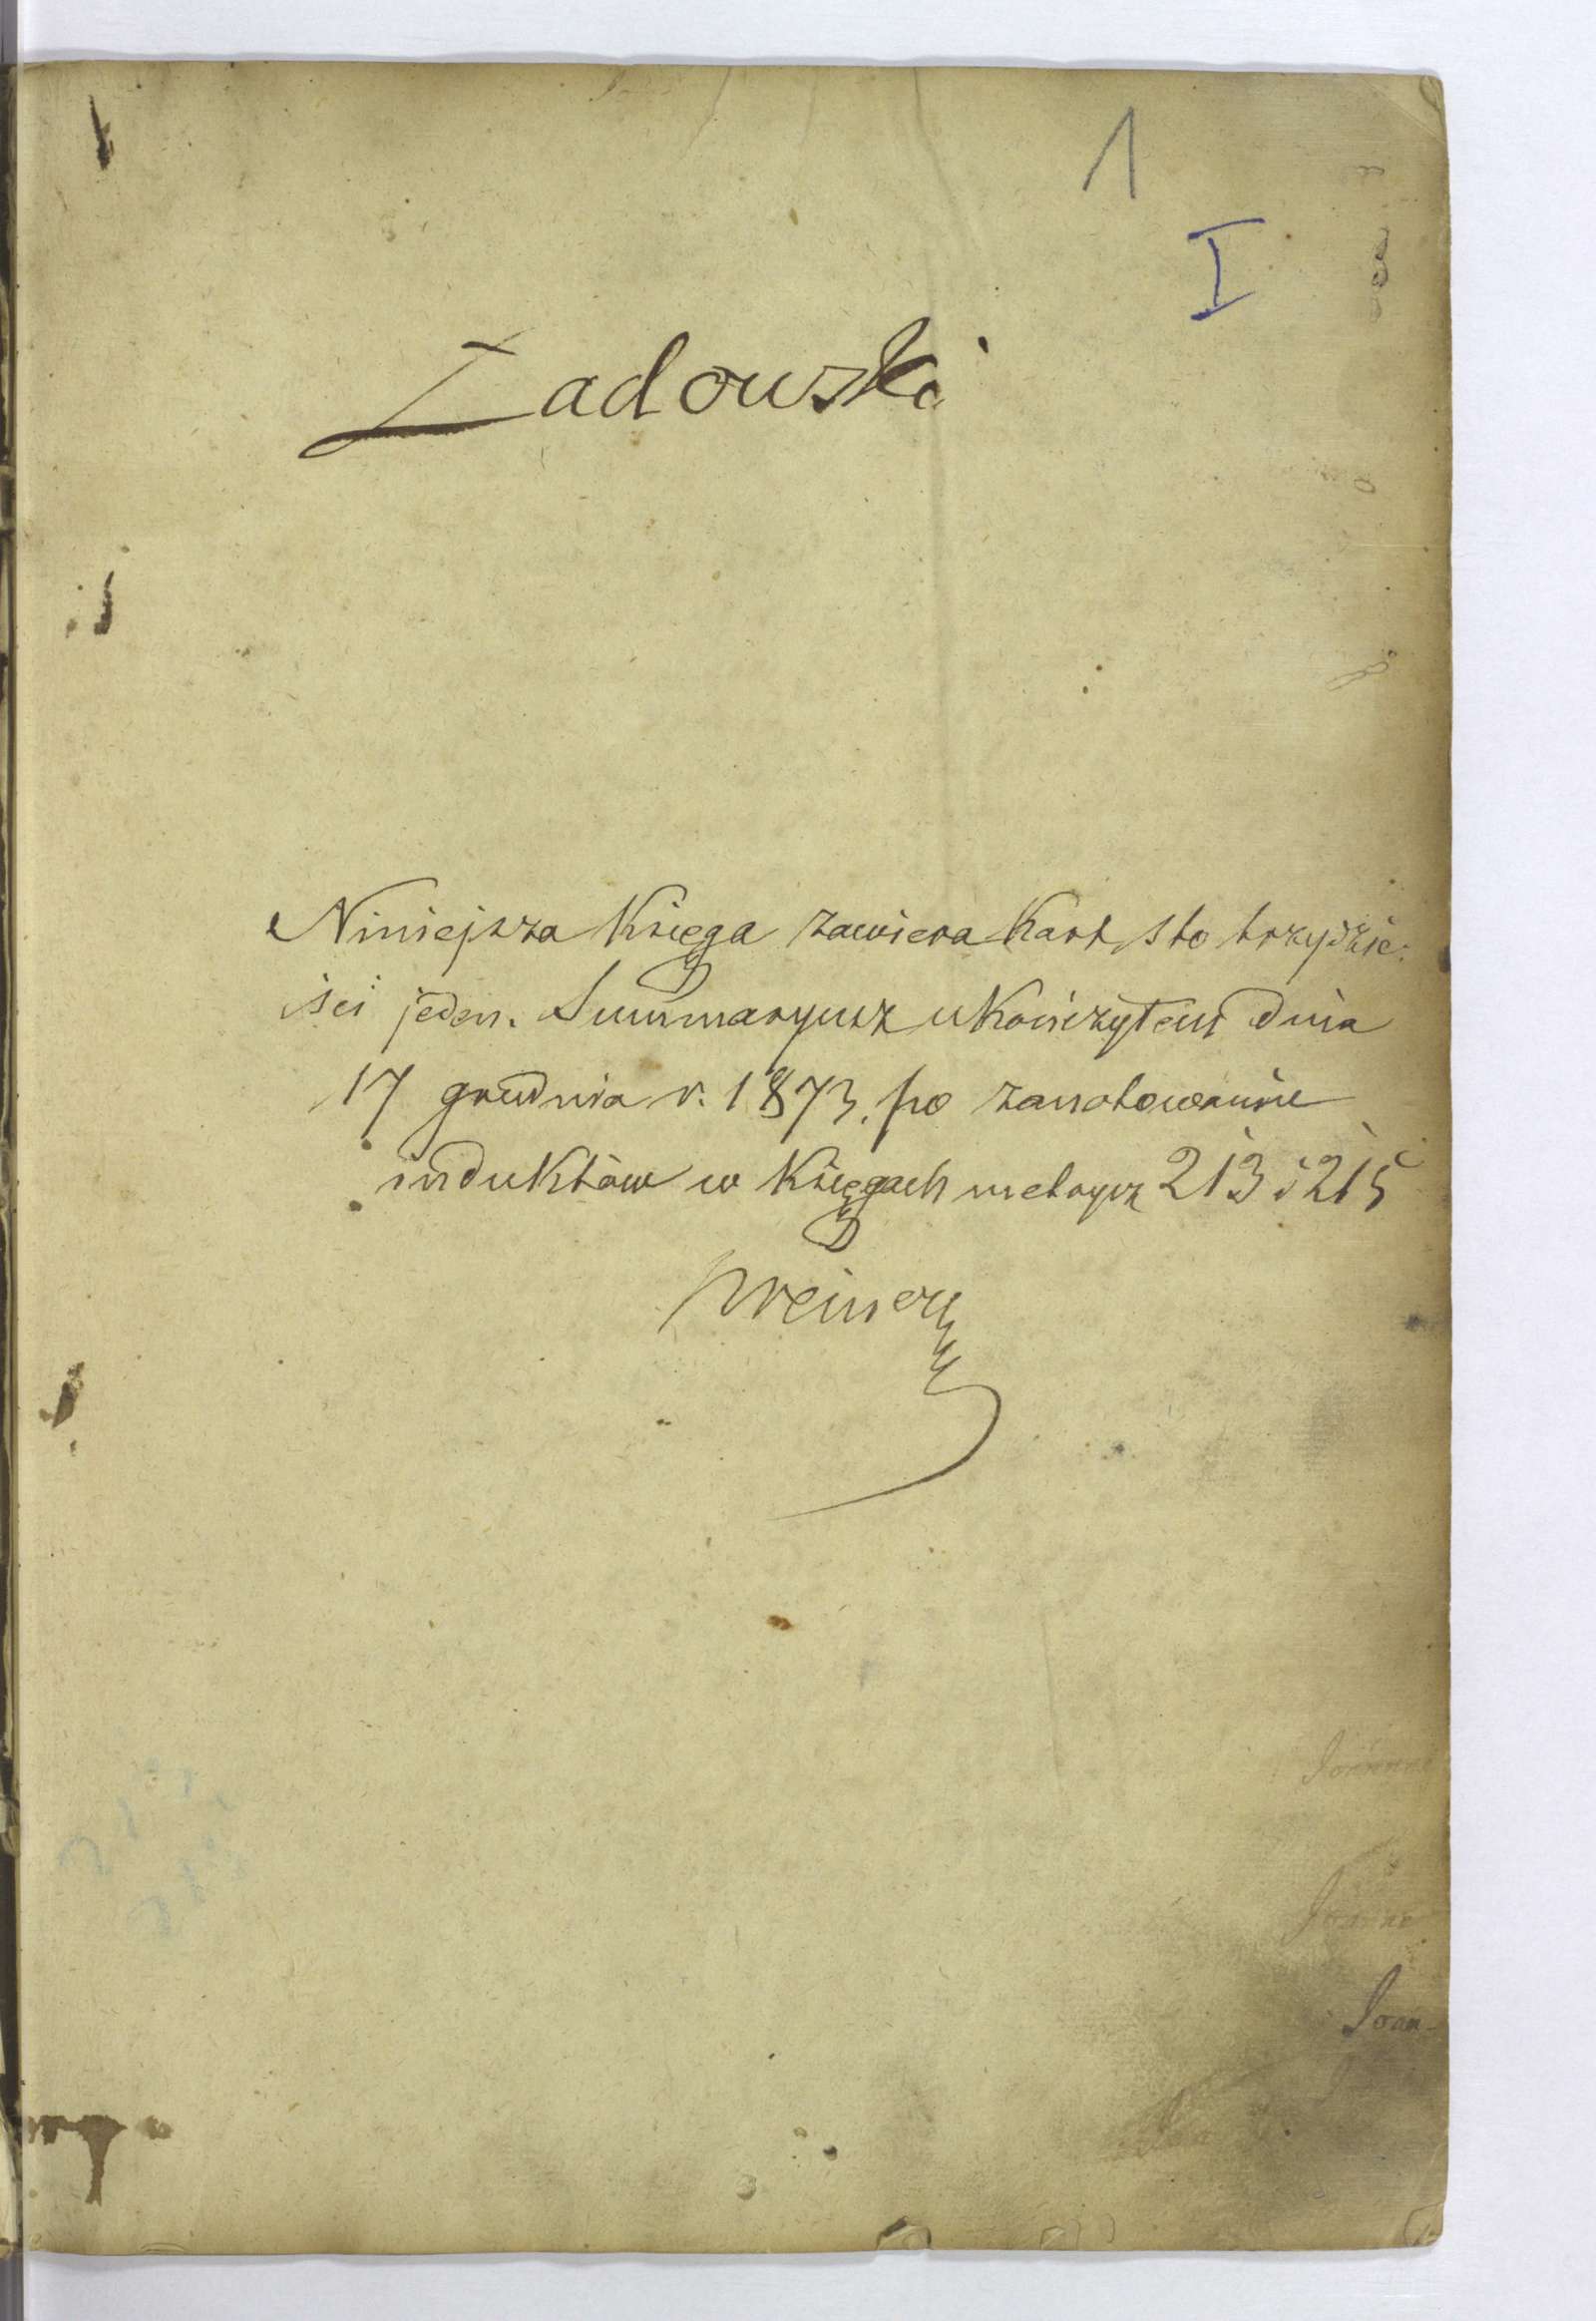 1
I
Ładowski
Niniejsza Księga zawiera Kart sto trzydzie-
ści jeden. Summaryusz ukończyłem dnia
17 grudnia r. 1873. po zanotowaniu
induktów w Księgach metrycz 213 i 215
Joan-